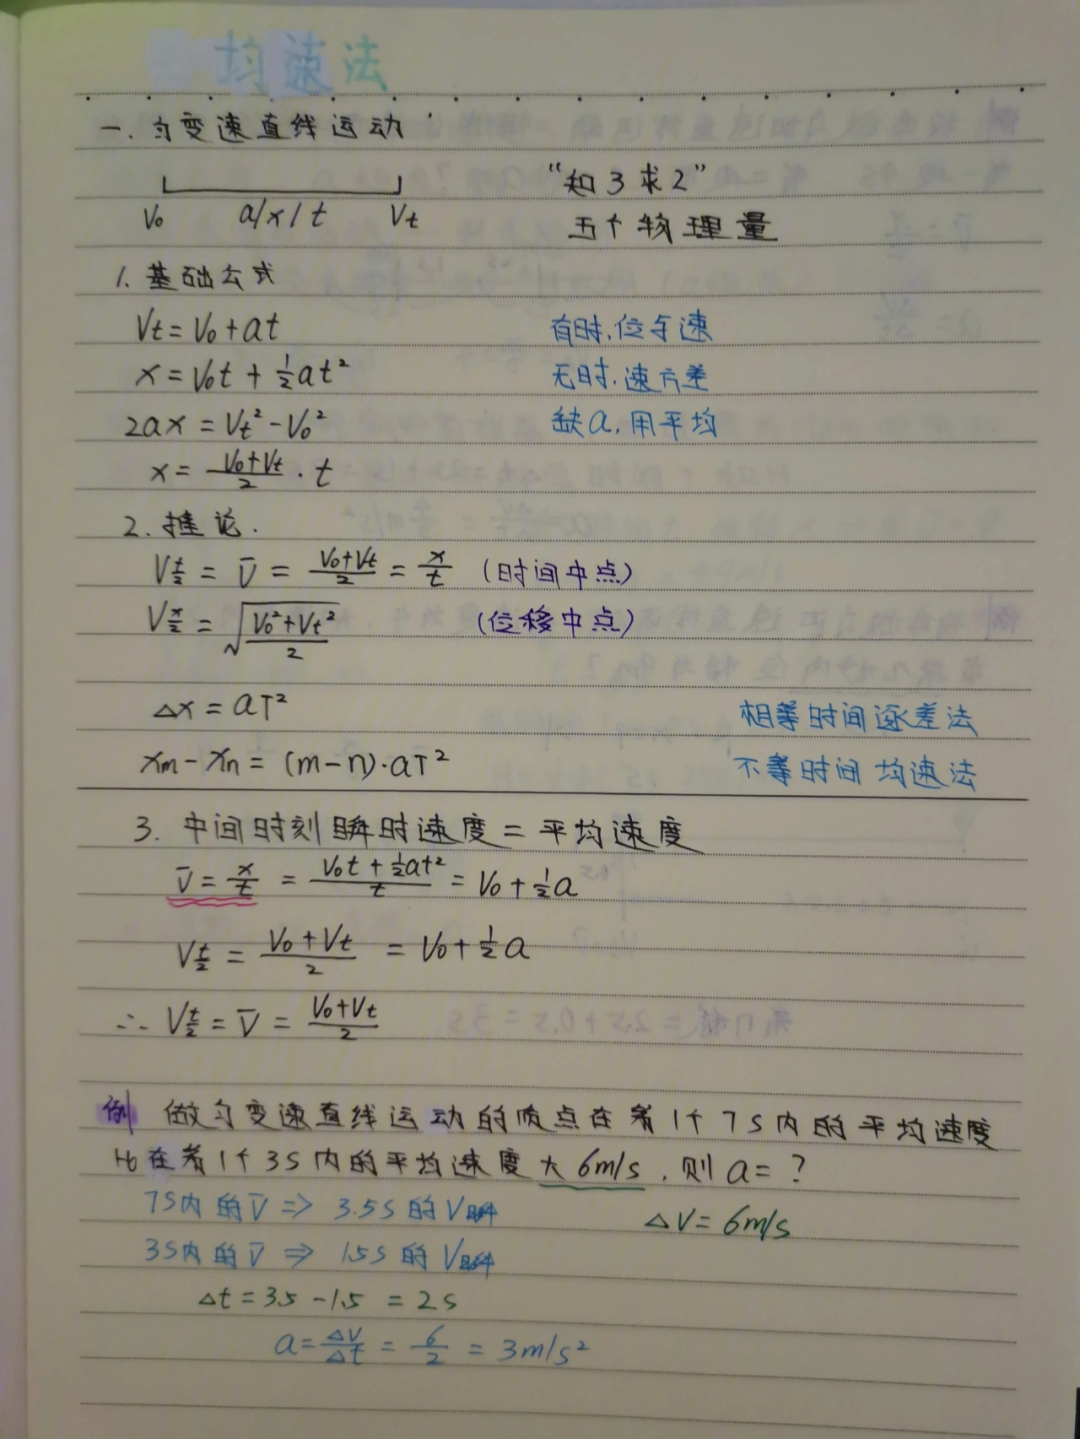 均速法
一、匀变速直线运动
V₀ a/x/t Vt
"知3求2"
五个物理量
1. 基础公式
Vt=V₀+at 有时,位与速
x=V₀t+½at² 无时,速方差
2ax=Vt²-V₀² 缺a,用平均
x=(V₀+Vt)/2·t
2. 推论.
V_{t/2}=V̄=(V₀+Vt)/2=x/t (时间中点)
V_{x/2}=√((V₀²+Vt²)/2) (位移中点)
△x=aT² 相等时间逐差法
xm-xn=(m-n)·aT² 不等时间均速法
3. 中间时刻瞬时速度=平均速度
V̄=x/t=(V₀t+½at²)/t=V₀+½a
V_{t/2}=(V₀+Vt)/2=V₀+½a
∴ V_{t/2}=V̄=(V₀+Vt)/2
例 做匀变速直线运动的质点在着1个7s内的平均速度
比在着1个3s内的平均速度大6m/s,则a=?
7s内的V̄⇒3.5s的V瞬 △V=6m/s
3s内的V̄⇒1.5s的V瞬
△t=3.5-1.5=2s
a=△V/△t=6/2=3m/s²